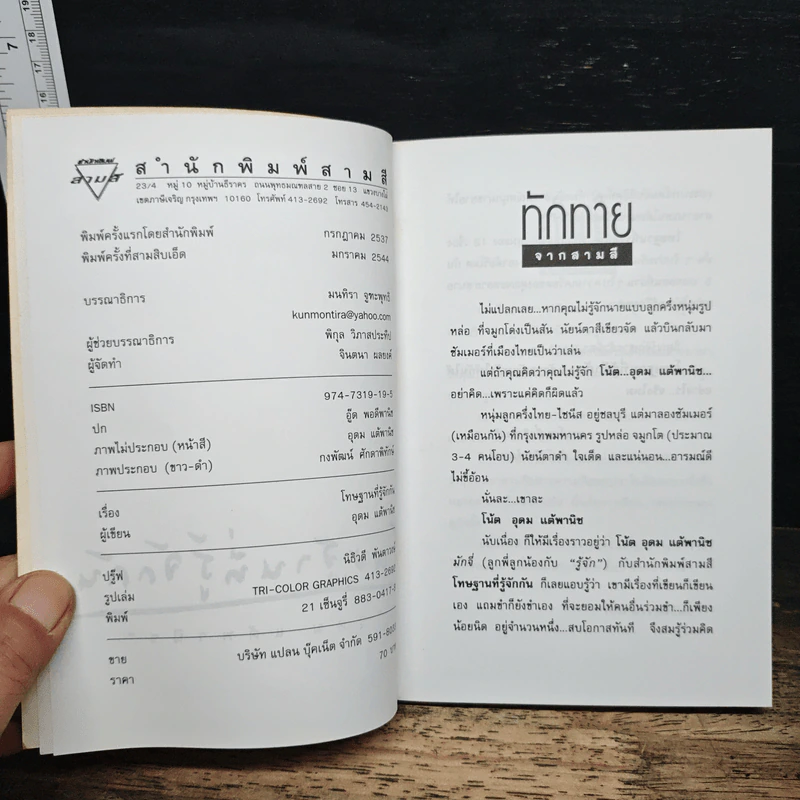 สำนักพิมพ์
สามสี
สำนักพิมพ์สามสี
23/4 หมู่ 10 หมู่บ้านธีราคร ถนนพุทธมณฑลสาย 2 ซอย 13 แขวงบางไผ่
เขตภาษีเจริญ กรุงเทพฯ 10160 โทรศัพท์ 413-2692 โทรสาร 454-2143
พิมพ์ครั้งแรกโดยสำนักพิมพ์ กรกฎาคม 2537
พิมพ์ครั้งที่สามสิบเอ็ด มกราคม 2544
บรรณาธิการ มนทิรา จูฑะพุทธิ
kunmontira@yahoo.com
ผู้ช่วยบรรณาธิการ พิกุล วิภาสประทีป
ผู้จัดทำ จินตนา ผลยงค์
ISBN 974-7319-19-5
ปก อู๊ด พอดีพานิช
ภาพไม่ประกอบ (หน้าสี) อุดม แต้พานิช
ภาพประกอบ (ขาว-ดำ) กงพัฒน์ ศักดาพิทักษ์
เรื่อง โทษฐานที่รู้จักกัน
ผู้เขียน อุดม แต้พานิช
ปรู๊ฟ นิธิวดี
รูปเล่ม TRI-COLOR GRAPHICS 413-2692
พิมพ์ 21 เซ็นจูรี่ 883-0417-8
ขาย บริษัท แปลน บุ๊คเน็ต จำกัด
ราคา 70 บาท
ทักทาย
จากสามสี
ไม่แปลกเลย...หากคุณไม่รู้จักนายแบบลูกครึ่งหนุ่มรูป
หล่อ ที่จมูกโด่งเป็นสัน นัยน์ตาสีเขียวจัด แล้วบินกลับมา
ซัมเมอร์ที่เมืองไทยเป็นว่าเล่น
แต่ถ้าคุณคิดว่าคุณไม่รู้จัก โน้ต...อุดม แต้พานิช...
อย่าคิด...เพราะแค่คิดก็ผิดแล้ว
หนุ่มลูกครึ่งไทย-ไชนีส อยู่ชลบุรี แต่มาลองซัมเมอร์
(เหมือนกัน) ที่กรุงเทพมหานคร รูปหล่อ จมูกโต (ประมาณ
3-4 คนโอบ) นัยน์ตาดำ ใจเด็ด และแน่นอน...อารมณ์ดี
ไม่ขี้อ้อน
นั่นละ...เขาละ
โน้ต อุดม แต้พานิช
นับเนื่อง ก็ให้มีเรื่องราวอยู่ว่า โน้ต อุดม แต้พานิช
มักจี่ (ลูกพี่ลูกน้องกับ "รู้จัก") กับสำนักพิมพ์สามสี
โทษฐานที่รู้จักกัน ก็เลยแอบรู้ว่า เขามีเรื่องที่เขียนก็เขียน
เอง แถมขำก็ยังขำเอง ที่จะยอมให้คนอื่นร่วมขำ...ก็เพียง
น้อยนิด อยู่จำนวนหนึ่ง...สบโอกาสทันที จึงสมรู้ร่วมคิด